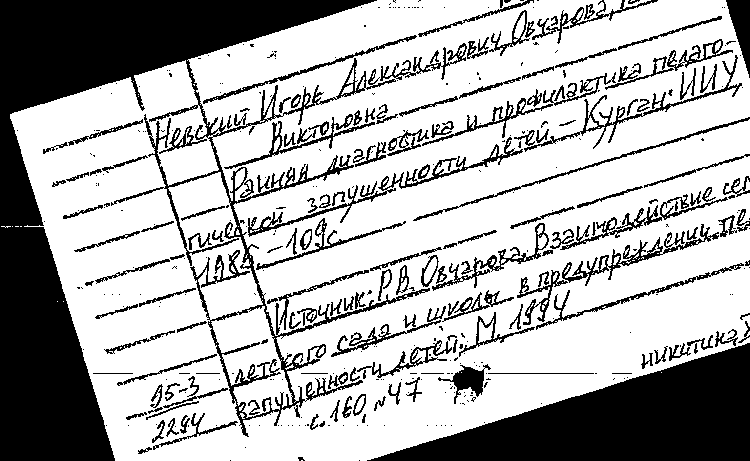 Невский, Игорь Александрович, Овчарова,
Викторовна
Ранняя диагностика и профилактика педаго-
гической запущенности детей. – Курган: ИИУ,
1985. – 109с.
Источник: Р.В. Овчарова. Взаимодействие
детского сада и школы в предупреждении
запущенности детей: М, 1994
с. 160, №47
95-3
2294
никитина